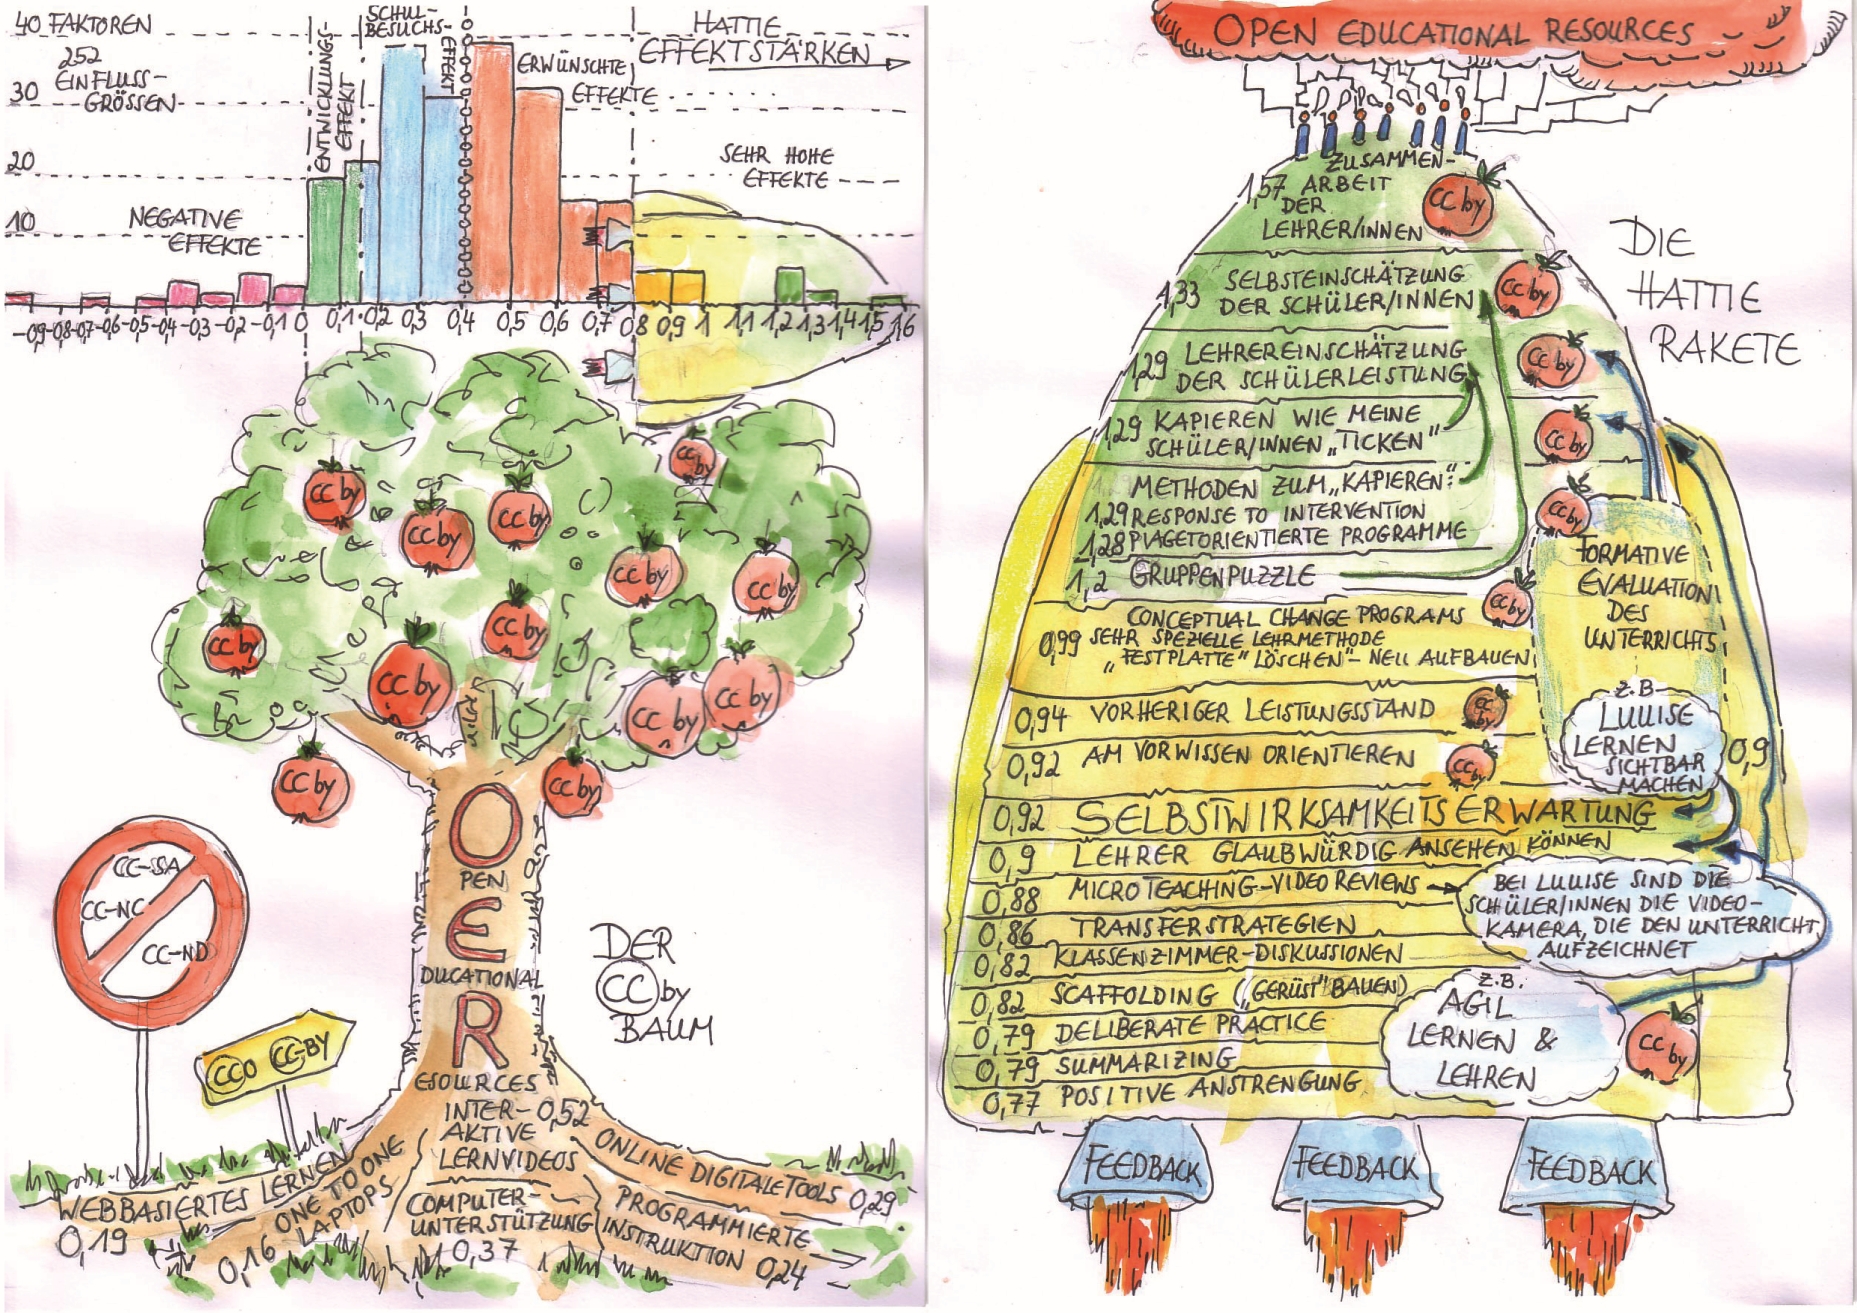 40 FAKTOREN
252
EINFLUSS-
GRÖSSEN
30
20
10
NEGATIVE
EFFEKTE
ENTWICKLUNGS-
EFFEKT
SCHUL-
BESUCHS-
EFFEKT
ERWÜNSCHTE
EFFEKTE
HATTIE
EFFEKTSTÄRKEN
SEHR HOHE
EFFEKTE
-0,9 -0,8 -0,7 -0,6 -0,5 -0,4 -0,3 -0,2 -0,1 0 0,1 0,2 0,3 0,4 0,5 0,6 0,7 0,8 0,9 1 1,1 1,2 1,3 1,4 1,5 1,6
CC by
CC by
CC by
CC by
CC by
CC by
CC by
CC by
CC by
CC by
CC by
CC by
CC by
OPEN
EDUCATIONAL
RESOURCES
DER
CC by
BAUM
CC-SA
CC-NC
CC-ND
CC0 CC-BY
INTER- 0,52
AKTIVE
LERNVIDEOS
WEBBASIERTES LERNEN
0,19
ONE TO ONE
LAPTOPS
0,16
COMPUTER-
UNTERSTÜTZUNG
0,37
PROGRAMMIERTE
INSTRUKTION 0,24
ONLINE DIGITALE TOOLS 0,29
OPEN EDUCATIONAL RESOURCES
DIE
HATTIE
RAKETE
ZUSAMMEN-
1,57 ARBEIT
DER
LEHRER/INNEN
CC by
SELBSTEINSCHÄTZUNG
1,33 DER SCHÜLER/INNEN
CC by
1,29 LEHREREINSCHÄTZUNG
DER SCHÜLERLEISTUNG
CC by
1,29 KAPIEREN WIE MEINE
SCHÜLER/INNEN „TICKEN"
CC by
METHODEN ZUM „KAPIEREN":
1,29 RESPONSE TO INTERVENTION
1,28 PIAGETORIENTIERTE PROGRAMME
CC by
1,2 GRUPPENPUZZLE
CC by
CONCEPTUAL CHANGE PROGRAMS
0,99 SEHR SPEZIELLE LEHRMETHODE
„FESTPLATTE" LÖSCHEN" - NEU AUFBAUEN
FORMATIVE
EVALUATION
DES
UNTERRICHTS
Z.B
LUUISE
LERNEN
SICHTBAR
MACHEN
0,9
0,94 VORHERIGER LEISTUNGSSTAND
CC by
0,92 AM VORWISSEN ORIENTIEREN
CC by
0,92 SELBSTWIRKSAMKEITSERWARTUNG
0,9 LEHRER GLAUBWÜRDIG ANSEHEN KÖNNEN
0,88 MICROTEACHING-VIDEO REVIEWS
BEI LUUISE SIND DIE
SCHÜLER/INNEN DIE VIDEO-
KAMERA, DIE DEN UNTERRICHT
AUFZEICHNET
0,86 TRANSFERSTRATEGIEN
0,82 KLASSENZIMMER-DISKUSSIONEN
0,82 SCAFFOLDING („GERÜST" BAUEN)
0,79 DELIBERATE PRACTICE
0,79 SUMMARIZING
0,77 POSITIVE ANSTRENGUNG
Z.B.
AGIL
LERNEN &
LEHREN
CC by
FEEDBACK
FEEDBACK
FEEDBACK